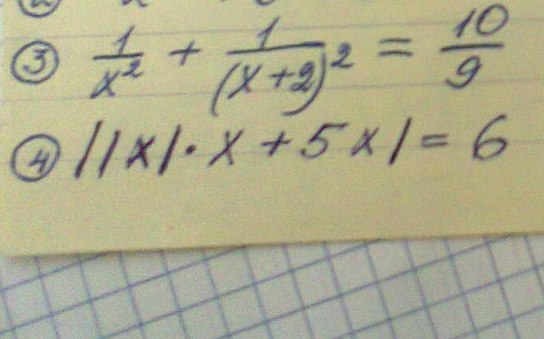 ③ 1/x² + 1/(x+2)² = 10/9
④ ||x|·x+5x|=6